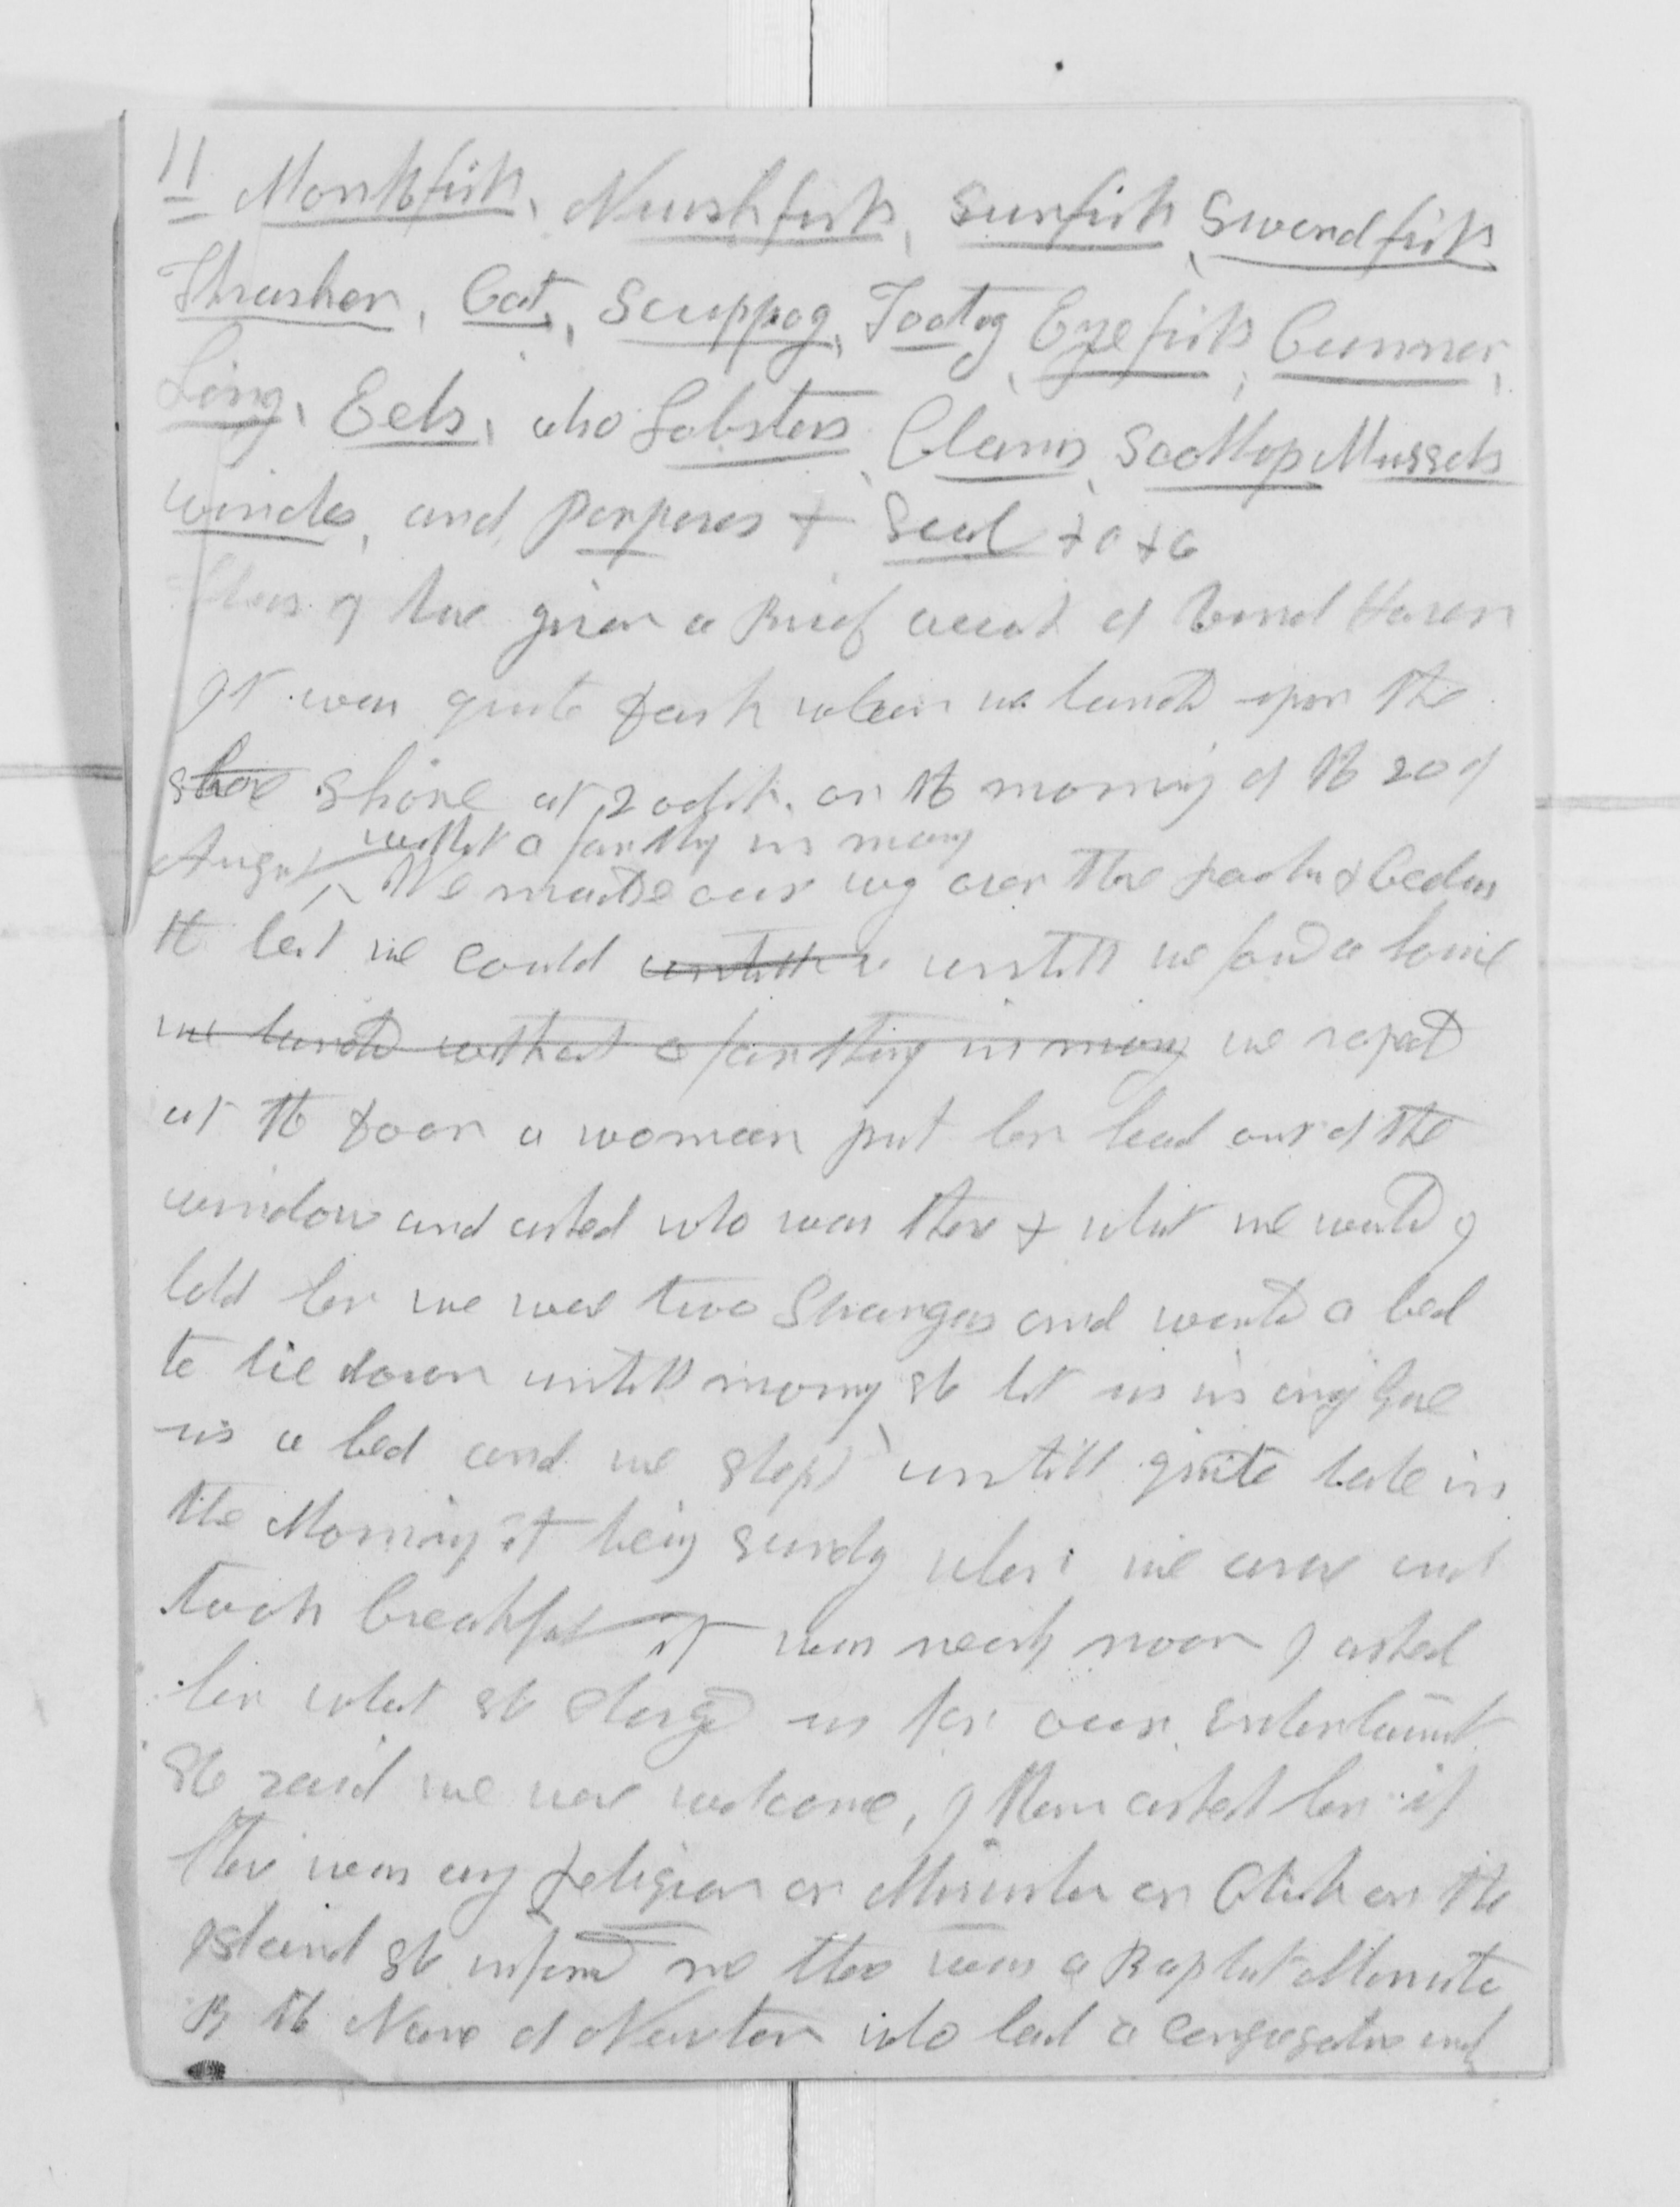 11
Monkfish, Nurshfish, Sunfish, Swordfish
Thrasher, Cat, Scuppog, Tootog, Eyefish, Cunner,
Ling, Eels, also Lobsters, Clams, Scollop Mussels
winkles, and Porposes & Seal &c &c
Thus I have given a Brief account of Vinal Haven
It was quite dark when we landed upon the
shore shore at 2 oclock on the morning of the 20 of
without a farthing in money
August We made our way over the rocks & Cedars
the best we could untill we untill we found a house
we landed without a farthing in money we raped
at the door a woman put her head out of the
window and asked who was there & what we wanted I
told her we was two Strangers and wanted a bed
to lie down untill morning she let us in and gave
us a bed and we slept untill quite late in
the Morning it being sunday when we arose and
took breakfast it was nearly noon I asked
her what she charged us for our entertainment
She said we were welcome, I then asked her if
there was any religion or Minister or Church on the
Island she informed me there was a Baptist Minister
By the Name of Newton who had a congregation and